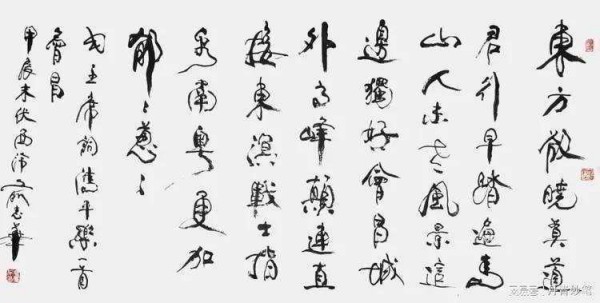 東方欲曉莫道
君行早踏遍青
山人未老風景這
邊獨好會昌城
外高峰顛連直
接東溟戰士指
看南粵更加
郁〻蔥〻
毛主席詞清平樂一首
會昌
甲辰末伏
丹青妙笔